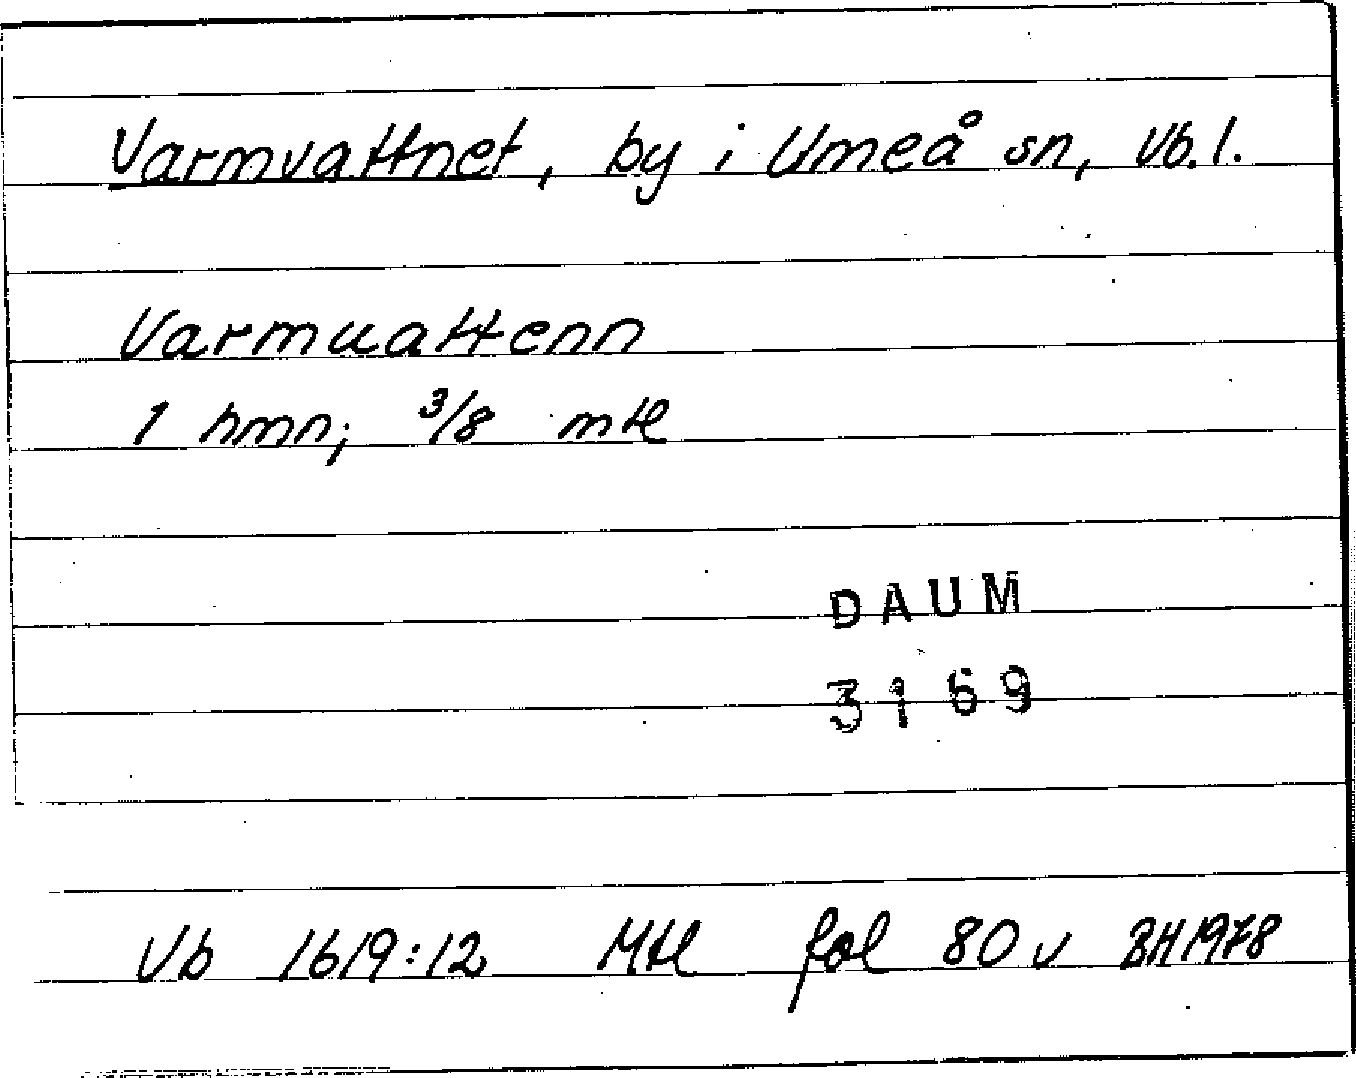 Varmvattnet, by i Umeå sn, Vb. l.
Varmuattenn
1 hmn; 3/8 mtl
DAUM
3169
Vb 1619:12 Mtl fol 80 v BH 1978